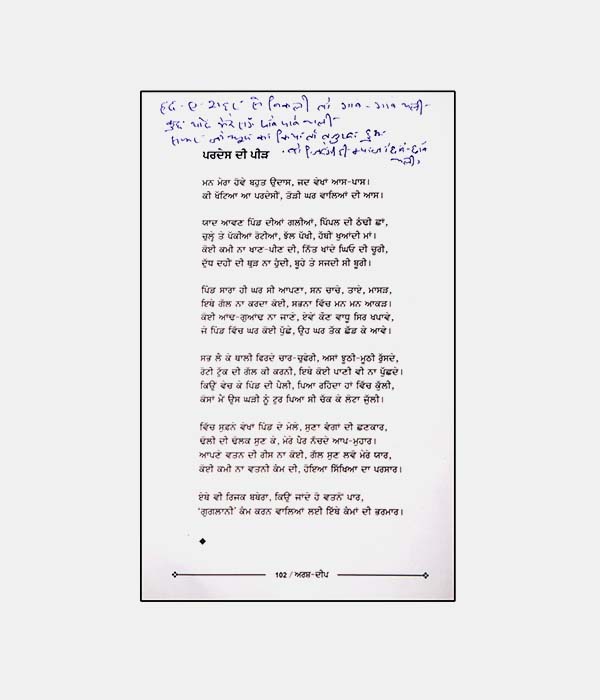 ਪਰਦੇਸ ਦੀ ਪੀੜ
ਮਨ ਮੇਰਾ ਹੋਵੇ ਬਹੁਤ ਉਦਾਸ, ਜਦ ਵੇਖਾਂ ਆਸ-ਪਾਸ।
ਕੀ ਖੱਟਿਆ ਆ ਪਰਦੇਸੀਂ, ਤੋੜੀ ਘਰ ਵਾਲਿਆਂ ਦੀ ਆਸ।
ਯਾਦ ਆਵਣ ਪਿੰਡ ਦੀਆਂ ਗਲੀਆਂ, ਪਿੱਪਲ ਦੀ ਠੰਢੀ ਛਾਂ,
ਚੁਲ੍ਹੇ ਤੇ ਪੱਕੀਆਂ ਰੋਟੀਆਂ, ਝੱਲ ਪੱਖੀ, ਹੱਥੀਂ ਖੁਆਂਦੀ ਮਾਂ।
ਕੋਈ ਕਮੀ ਨਾ ਖਾਣ-ਪੀਣ ਦੀ, ਨਿੱਤ ਖਾਂਦੇ ਘਿਓ ਦੀ ਚੂਰੀ,
ਦੁੱਧ ਦਹੀਂ ਦੀ ਥੁੜ ਨਾ ਹੁੰਦੀ, ਬੂਹੇ ਤੇ ਸਜਦੀ ਸੀ ਬੂਰੀ।
ਪਿੰਡ ਸਾਰਾ ਹੀ ਘਰ ਸੀ ਆਪਣਾ, ਸਨ ਚਾਚੇ, ਤਾਏ, ਮਾਸੜ,
ਇਥੇ ਗੱਲ ਨਾ ਕਰਦਾ ਕੋਈ, ਸਭਨਾ ਵਿੱਚ ਮਨ ਮਨ ਆਕੜ।
ਕੋਈ ਆਂਢ-ਗੁਆਂਢ ਨਾ ਜਾਣੇ, ਏਵੇਂ ਕੌਣ ਵਾਧੂ ਸਿਰ ਖਪਾਵੇ,
ਜੇ ਪਿੰਡ ਵਿੱਚ ਘਰ ਕੋਈ ਪੁੱਛੇ, ਉਹ ਘਰ ਤੱਕ ਛੱਡ ਕੇ ਆਵੇ।
ਸਭ ਲੈ ਕੇ ਥਾਲੀ ਫਿਰਦੇ ਚਾਰ-ਚੁਫੇਰੀ, ਅਸਾਂ ਝੂਠੀ-ਮੂਠੀ ਰੁੱਸਦੇ,
ਰੋਟੀ ਟੁੱਕ ਦੀ ਗੱਲ ਕੀ ਕਰਨੀ, ਇਥੇ ਕੋਈ ਪਾਣੀ ਵੀ ਨਾ ਪੁੱਛਦੇ।
ਕਿਉਂ ਵੇਚ ਕੇ ਪਿੰਡ ਦੀ ਪੈਲੀ, ਪਿਆ ਰਹਿੰਦਾ ਹਾਂ ਵਿੱਚ ਕੁੱਲੀ,
ਕੋਸਾਂ ਮੈਂ ਉਸ ਘੜੀ ਨੂੰ ਟੁਰ ਪਿਆ ਸੀ ਚੱਕ ਕੇ ਲੋਟਾ ਜੁੱਲੀ।
ਵਿੱਚ ਸੁਫਨੇ ਵੇਖਾਂ ਪਿੰਡ ਦੇ ਮੇਲੇ, ਸੁਣਾ ਵੰਗਾਂ ਦੀ ਛਣਕਾਰ,
ਢੋਲੀ ਦੀ ਢੋਲਕ ਸੁਣ ਕੇ, ਮੇਰੇ ਪੈਰ ਨੱਚਦੇ ਆਪ-ਮੁਹਾਰ।
ਆਪਣੇ ਵਤਨ ਦੀ ਰੀਸ ਨਾ ਕੋਈ, ਗੱਲ ਸੁਣ ਲਵੋ ਮੇਰੇ ਯਾਰ,
ਕੋਈ ਕਮੀ ਨਾ ਵਤਨੀ ਕੰਮ ਦੀ, ਹੋਇਆ ਸਿੱਖਿਆ ਦਾ ਪਰਸਾਰ।
ਏਥੇ ਵੀ ਰਿਜਕ ਬਥੇਰਾ, ਕਿਉਂ ਜਾਂਦੇ ਹੋ ਵਤਨੋਂ ਪਾਰ,
'ਗੁਗਲਾਨੀ' ਕੰਮ ਕਰਨ ਵਾਲਿਆਂ ਲਈ ਇੱਥੇ ਕੰਮਾਂ ਦੀ ਭਰਮਾਰ।
102 / ਅਰਸ਼-ਦੀਪ